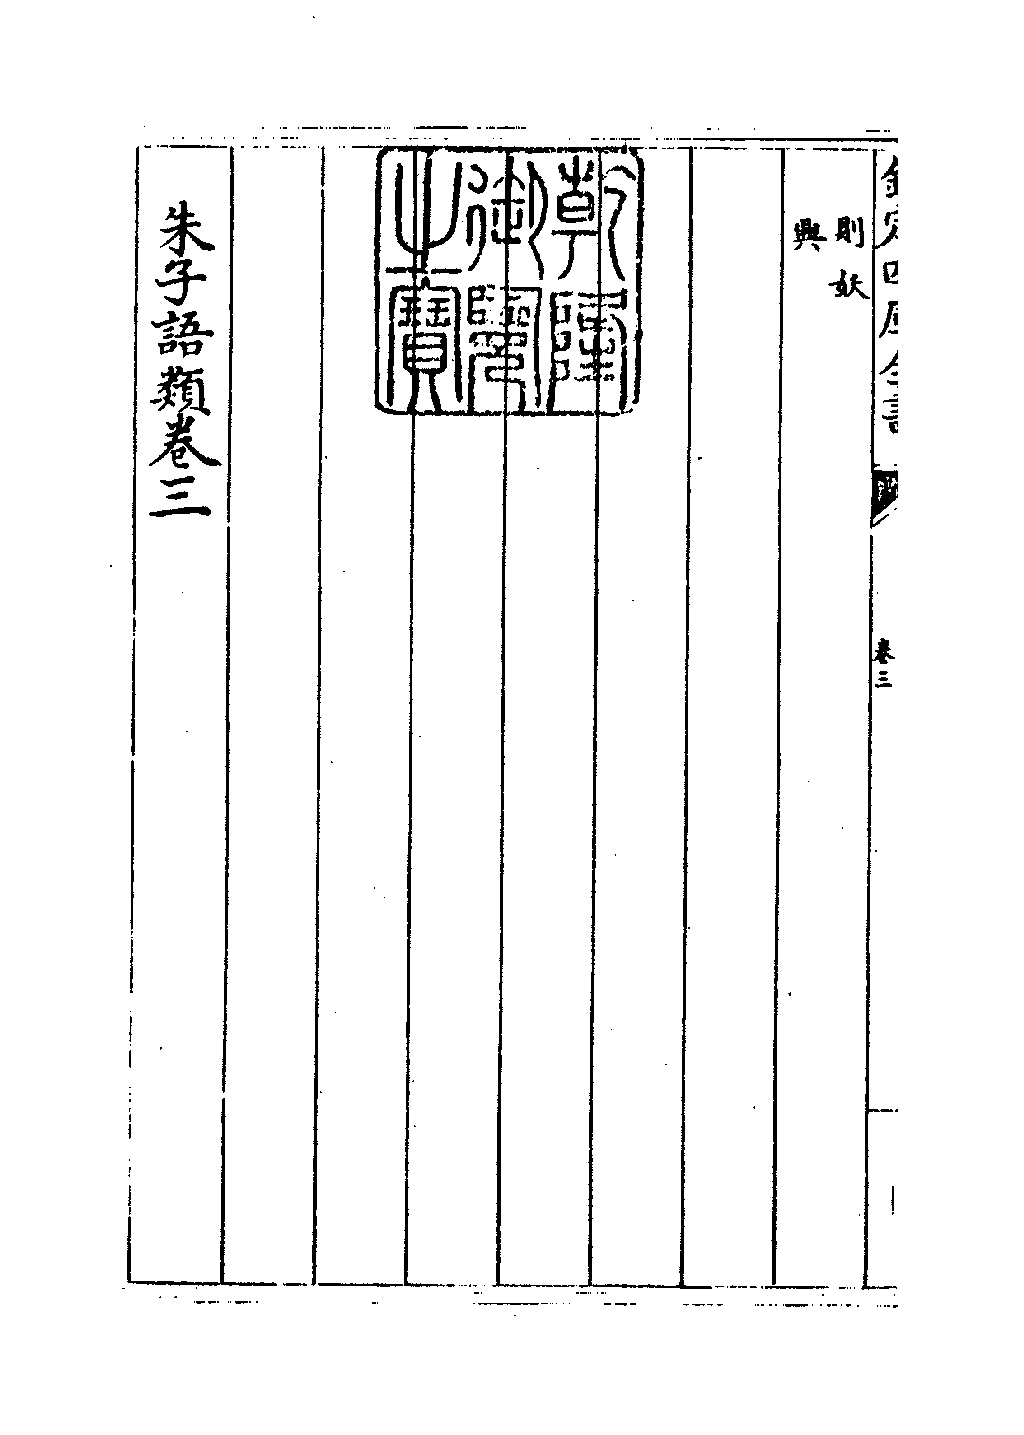 欽定四庫全書
卷三
則妖
興
乾隆
御覽
之寶
朱子語類卷三